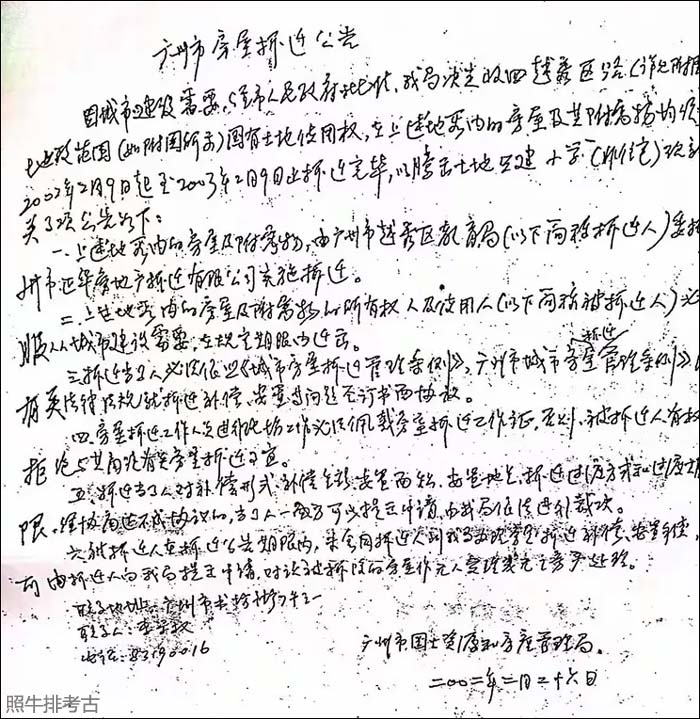 广州市房屋拆迁公告
因城市建设需要,经市人民政府批准,我局决定收回越秀区路(详见附图
地段范围(如附图所示)国有土地使用权,在上述地段内的房屋及其附属物均
2002年2月9日起至2003年2月9日止拆迁完毕,以腾出土地兴建小学(
关事项公告如下:
一.上述地段内的房屋及附属物,由广州市越秀区教育局(以下简称拆迁人)委托
州市 房地产拆迁有限公司实施拆迁。
二.上述地段内的房屋及附属物的所有权人及使用人(以下简称被拆迁人)必
服从城市建设需要,在规定期限内迁出。
三.拆迁当事人必须依照《城市房屋拆迁管理条例》,广州市城市房屋拆迁管理条例》
有关法律法规就拆迁补偿、安置等问题签订书面协议。
四.房屋拆迁工作人员进行现场工作必须佩戴房屋拆迁工作证,否则,被拆迁人有权
拒绝与其商洽有关房屋拆迁事宜。
五.拆迁当事人对补偿形式、补偿金额、安置面积、安置地点、拆迁过渡方式和过渡期
限,经协商达不成协议的,当事人一方可以提出申请,由我局依法进行裁决。
六.被拆迁人在拆迁公告期限内,未会同拆迁人到我局办理房屋拆迁补偿、安置手续,
可由拆迁人向我局提出申请,对该被拆除的房屋作无人管理或无主房产处理。
联系地址:广州市
联系人:李
电话:83190016
广州市国土资源和房屋管理局.
二00二年二月二十六日
照牛排考古